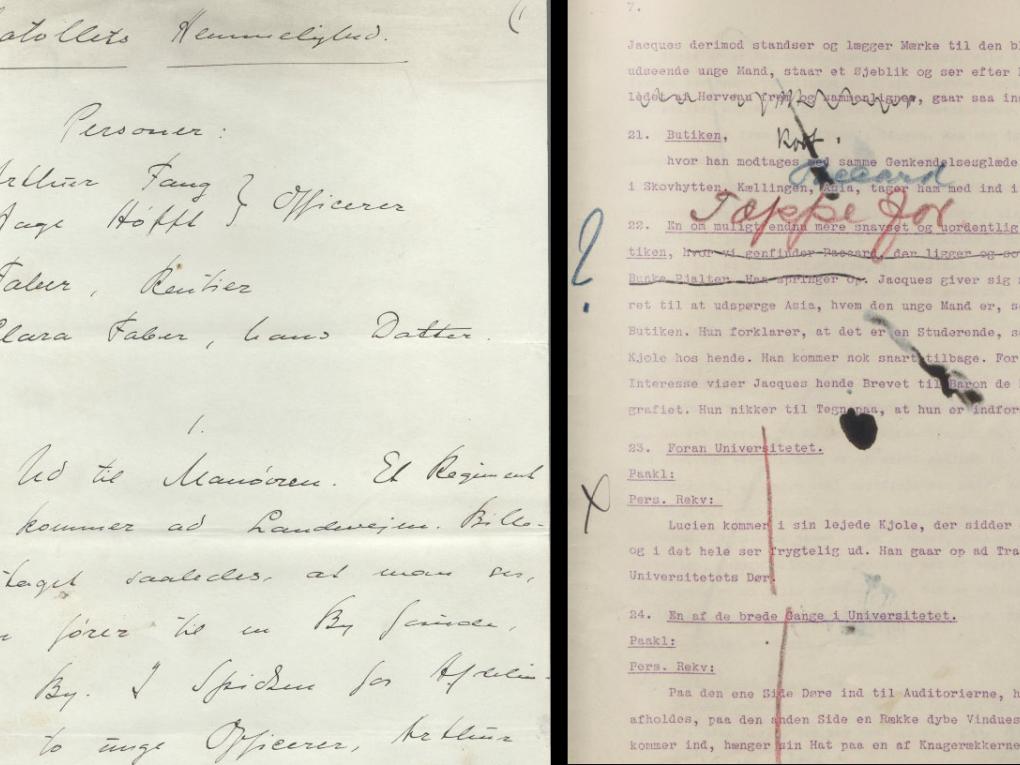 atollets Hemmelighed.
Personer:
Arthur Fang
Aage Höfft } Officerer
Faber, Rentier
Clara Faber, hans Datter.
1.
Ud til Manövren. Et Regiment
kommer ad Landevejen. Bille-
taget saaledes, at man ser,
fører til en By
By. I Spidsen for Afdelin-
to unge Officerer, Arthur
7.
Jacques derimod standser og lægger Mærke til den bl
udseende unge Mand, staar et Øjeblik og ser efter
ledet af Herveau frem og sammenligner, gaar saa in
21. Butiken,
Kort.
hvor han modtages med samme Genkendelsesglæde
Paccard
i Skovhytten. Kællingen, Asia, tager ham med ind i
Tæppe for
22. En om muligt endnu mere snavset og uordentlig
?
tiken, hvor vi genfinder Paccard, der ligger og so
Bunke Pjalter. Han springer op. Jacques giver sig
ret til at udspørge Asia, hvem den unge Mand er, s
Butiken. Hun forklarer, at det er en Studerende, s
Kjole hos hende. Han kommer nok snart tilbage. For
Interesse viser Jacques hende Brevet til Baron de
grafiet. Hun nikker til Tegn paa, at hun er indfor
23. Foran Universitetet.
Paakl:
X
Pers. Rekv:
Lucien kommer i sin lejede Kjole, der sidder
og i det hele ser frygtelig ud. Han gaar op ad Tra
Universitetets Dør.
24. En af de brede Gange i Universitetet.
Paakl:
Pers. Rekv:
Paa den ene Side Døre ind til Auditorierne, h
afholdes, paa den anden Side en Række dybe Vindues
kommer ind, hænger sin Hat paa en af Knagerækkerne